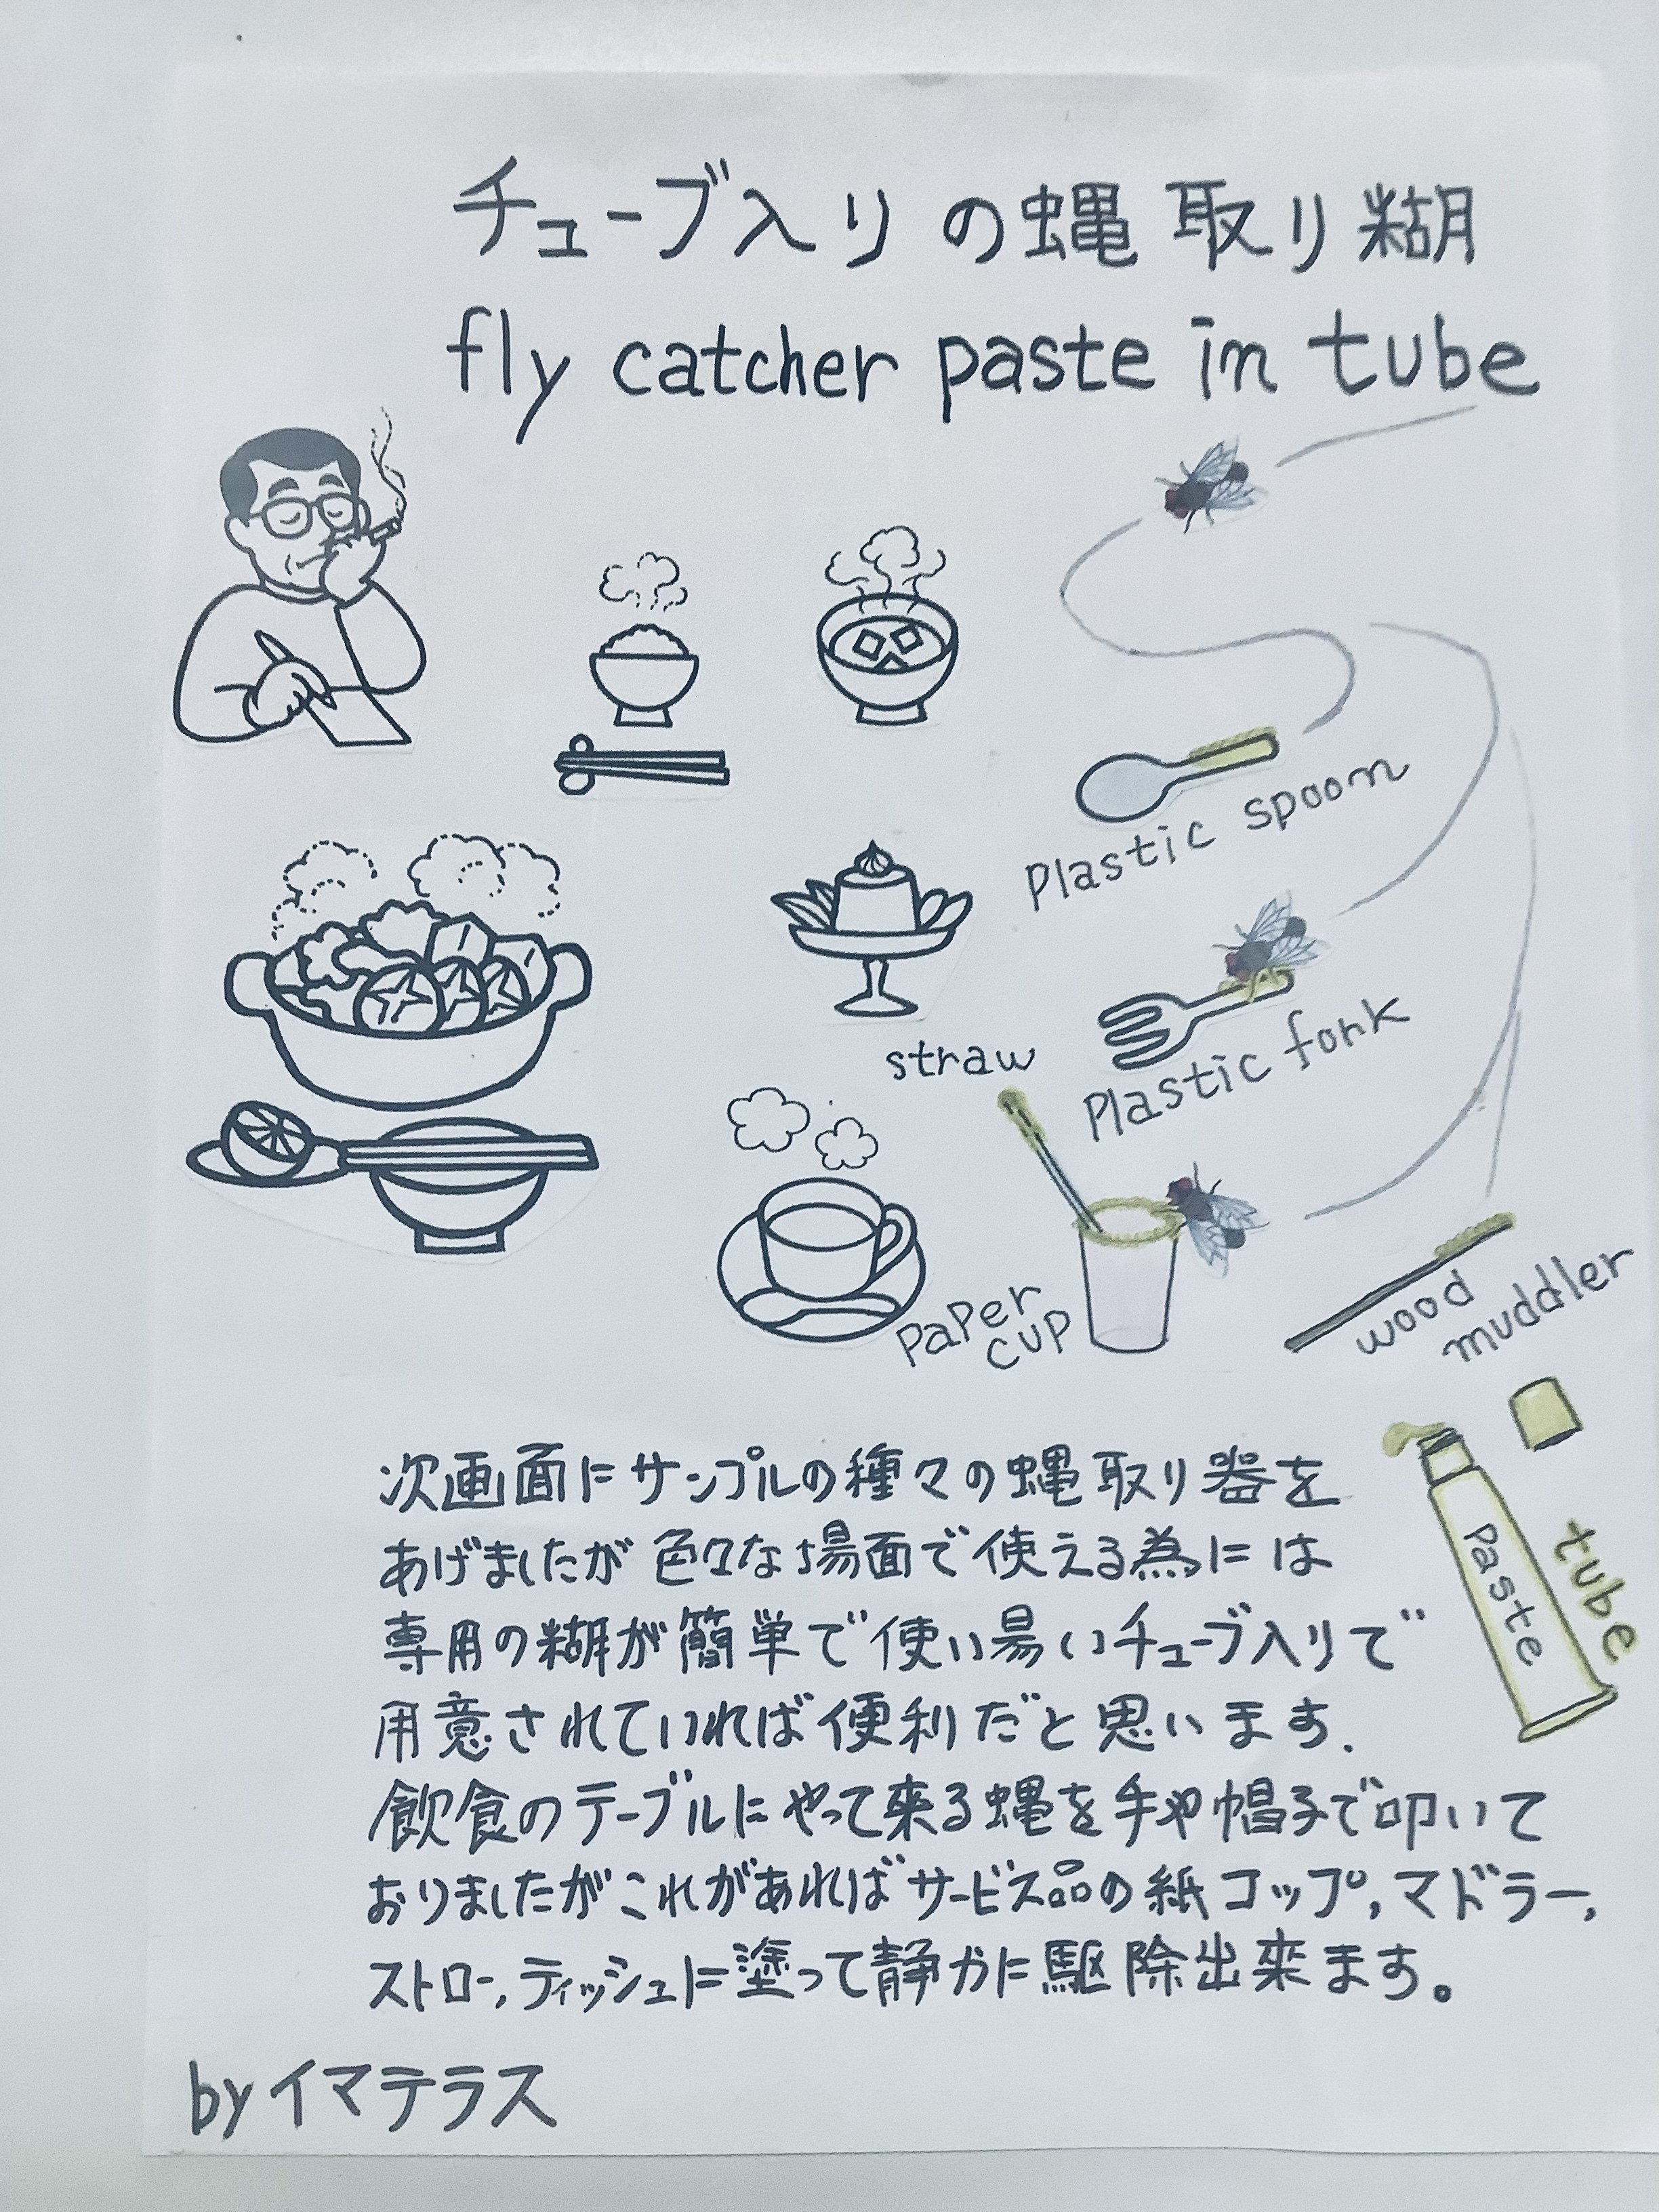 チューブ入りの蝿取り糊
fly catcher paste in tube
Plastic spoon
Plastic fork
straw
PaPer
cup
wood
muddler
tube
Paste
次画面にサンプルの種々の蝿取り器を
あげましたが色々な場面で使える為には
専用の糊が簡単で使い易いチューブ入りで
用意されていれば便利だと思います.
飲食のテーブルにやって来る蝿を手や帽子で叩いて
おりましたがこれがあればサービス品の紙コップ,マドラー,
ストロー,ティッシュに塗って静かに駆除出来ます。
byイマテラス